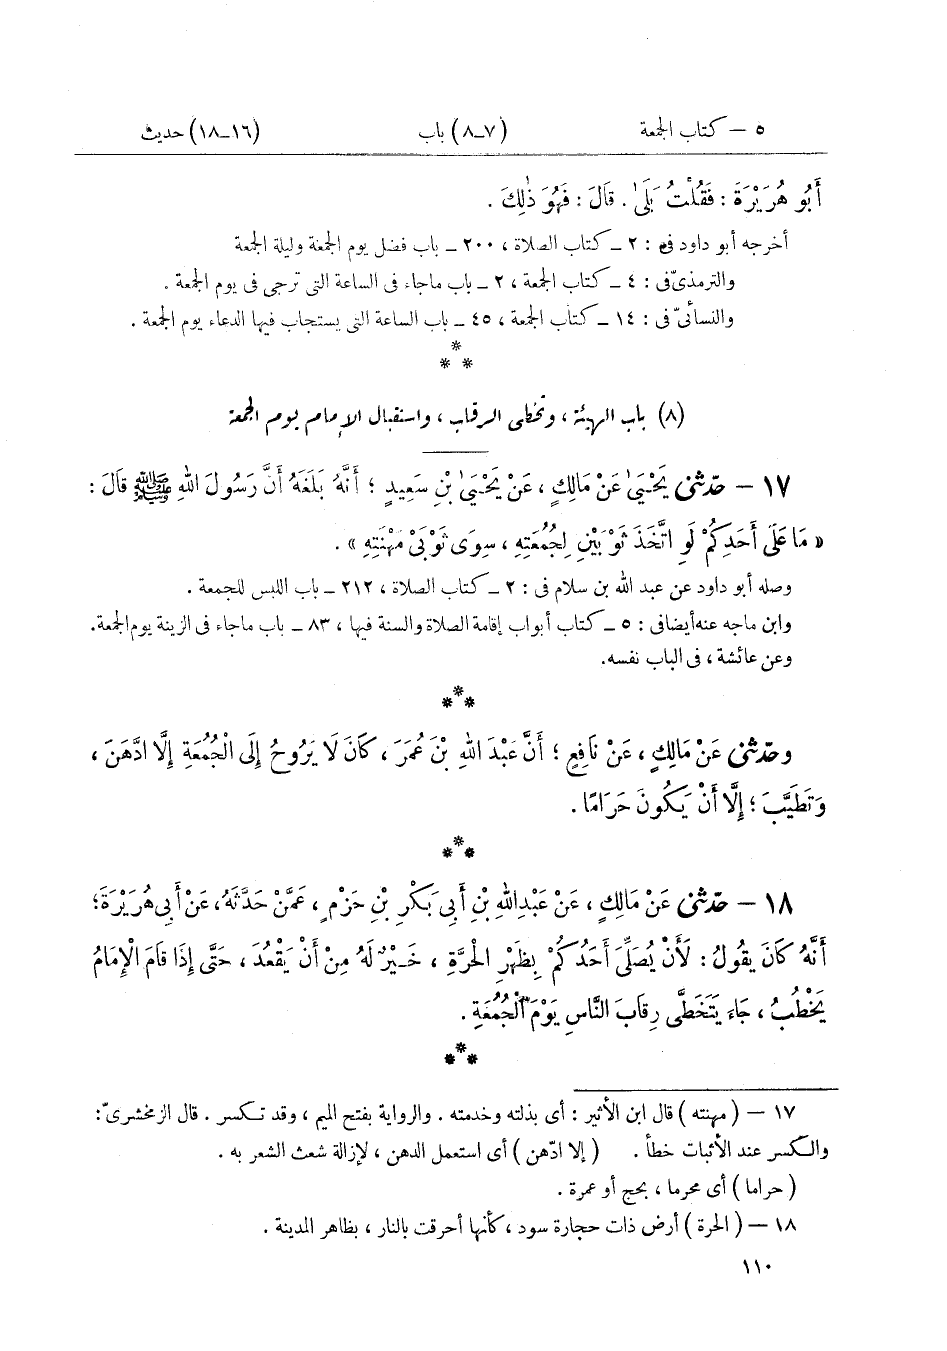 ٥ — كتاب الجمعة (٧ـ٨) باب (١٦ـ١٨) حديث
أَبُو هُرَيْرَةَ : فَقُلْتُ بَلَىٰ . قَالَ : فَهُوَ ذٰلِكَ .
أخرجه أبو داود فى : ٢ ـ كتاب الصلاة ، ٢٠٠ ـ باب فضل يوم الجمعة وليلة الجمعة
والترمذىّ فى : ٤ ـ كتاب الجمعة ، ٢ ـ باب ماجاء فى الساعة التى ترجى فى يوم الجمعة .
والنسائىّ فى : ١٤ ـ كتاب الجمعة ، ٤٥ ـ باب الساعة التى يستجاب فيها الدعاء يوم الجمعة .
*
* *
(٨) باب الهيئة ، وتخطى الرقاب ، واستقبال الإمام يوم الجمعة
١٧ — حدّثنى يَحْيَىٰ عَنْ مَالِكٍ ، عَنْ يَحْيَىٰ بْنِ سَعِيدٍ ؛ أَنَّهُ بَلَغَهُ أَنَّ رَسُولَ اللهِ ﷺ قَالَ :
« مَا عَلَى أَحَدِكُمْ لَوِ اتَّخَذَ ثَوْبَيْنِ لِجُمُعَتِهِ ، سِوَى ثَوْبَىْ مَهْنَتِهِ » .
وصله أبو داود عن عبد الله بن سلام فى : ٢ ـ كتاب الصلاة ، ٢١٢ ـ باب اللبس للجمعة .
وابن ماجه عنه أيضا فى : ٥ ـ كتاب أبواب إقامة الصلاة والسنة فيها ، ٨٣ ـ باب ماجاء فى الزينة يوم الجمعة.
وعن عائشة ، فى الباب نفسه.
*
* *
وحدّثنى عَنْ مَالِكٍ ، عَنْ نَافِعٍ ؛ أَنَّ عَبْدَ اللهِ بْنَ عُمَرَ ، كَانَ لَا يَرُوحُ إِلَى الْجُمُعَةِ إِلَّا ادَّهَنَ ،
وَتَطَيَّبَ ؛ إِلَّا أَنْ يَكُونَ حَرَامًا .
*
* *
١٨ — حدّثنى عَنْ مَالِكٍ ، عَنْ عَبْدِ اللهِ بْنِ أَبِى بَكْرِ بْنِ حَزْمٍ ، عَمَّنْ حَدَّثَهُ، عَنْ أَبِى هُرَيْرَةَ؛
أَنَّهُ كَانَ يَقُولُ : لَأَنْ يُصَلِّىَ أَحَدُكُمْ بِظَهْرِ الْحَرَّةِ ، خَيْرٌ لَهُ مِنْ أَنْ يَقْعُدَ ، حَتَّى إِذَا قَامَ الْإِمَامُ
يَخْطُبُ ، جَاءَ يَتَخَطَّى رِقَابَ النَّاسِ يَوْمَ الْجُمُعَةِ .
*
* *
١٧ — ( مهنته ) قال ابن الأثير : أى بذلته وخدمته . والرواية بفتح الميم ، وقد تكسر . قال الزمخشرىّ :
والكسر عند الأثبات خطأ . ( إلا ادّهن ) أى استعمل الدهن ، لإزالة شعث الشعر به .
( حراما ) أى محرما ، بحج أو عمرة .
١٨ — ( الحرة ) أرض ذات حجارة سود ، كأنها أحرقت بالنار ، بظاهر المدينة .
١١٠